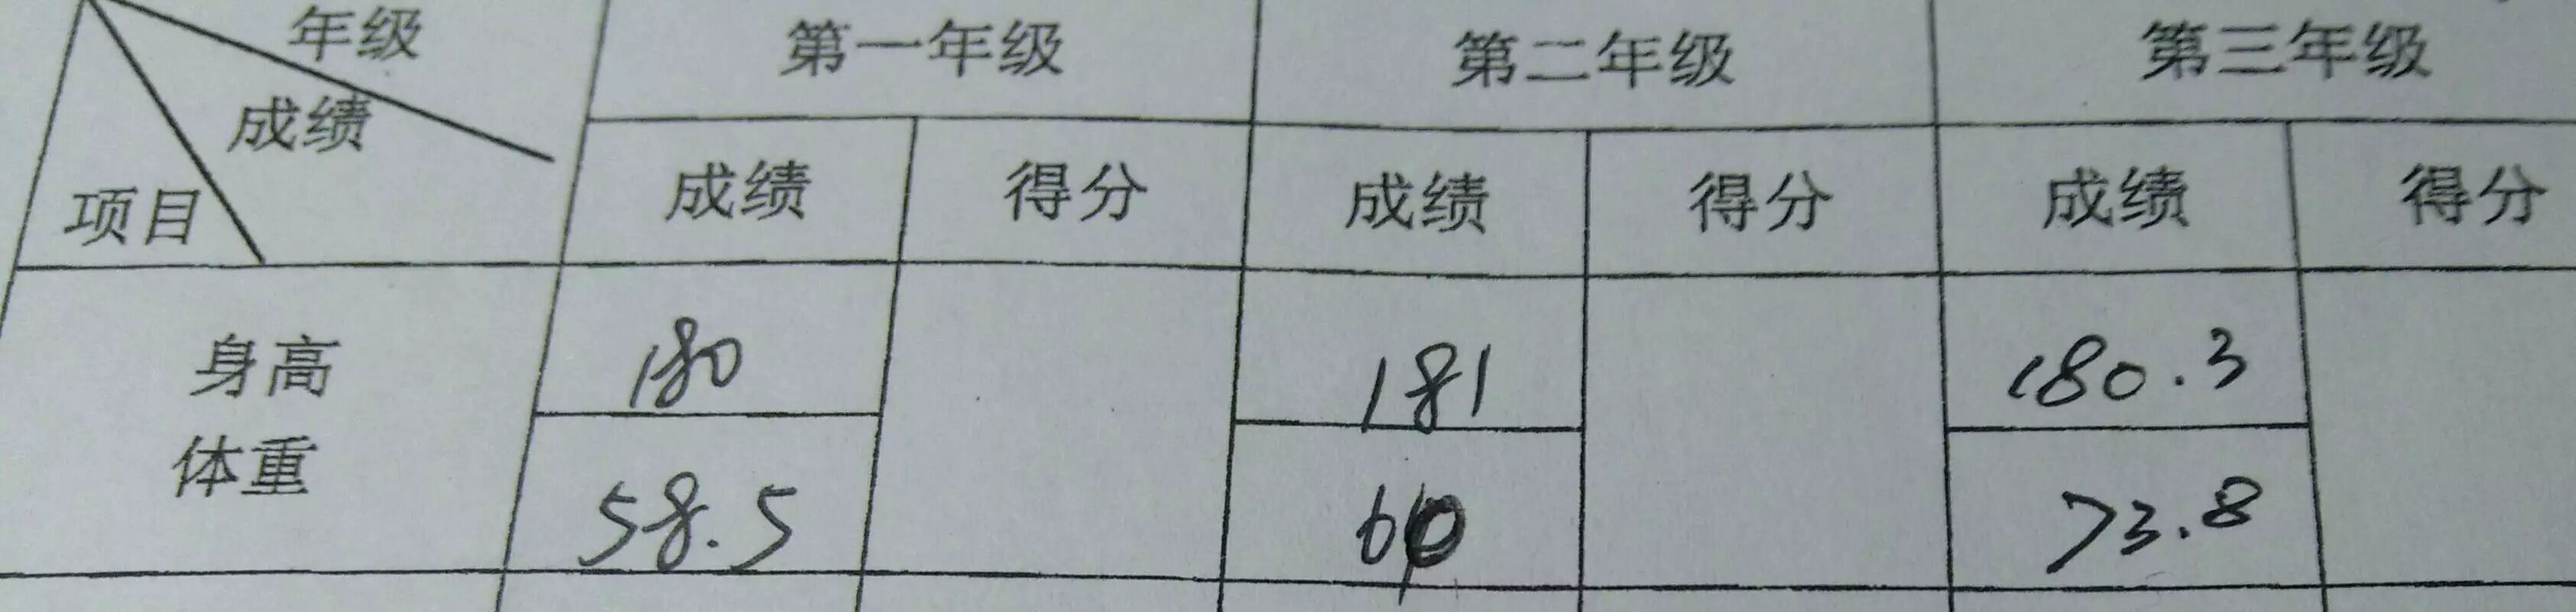 年级
成绩
项目
第一年级 第二年级 第三年级
成绩 得分 成绩 得分 成绩 得分
身高 180 181 180.3
体重 58.5 60 73.8